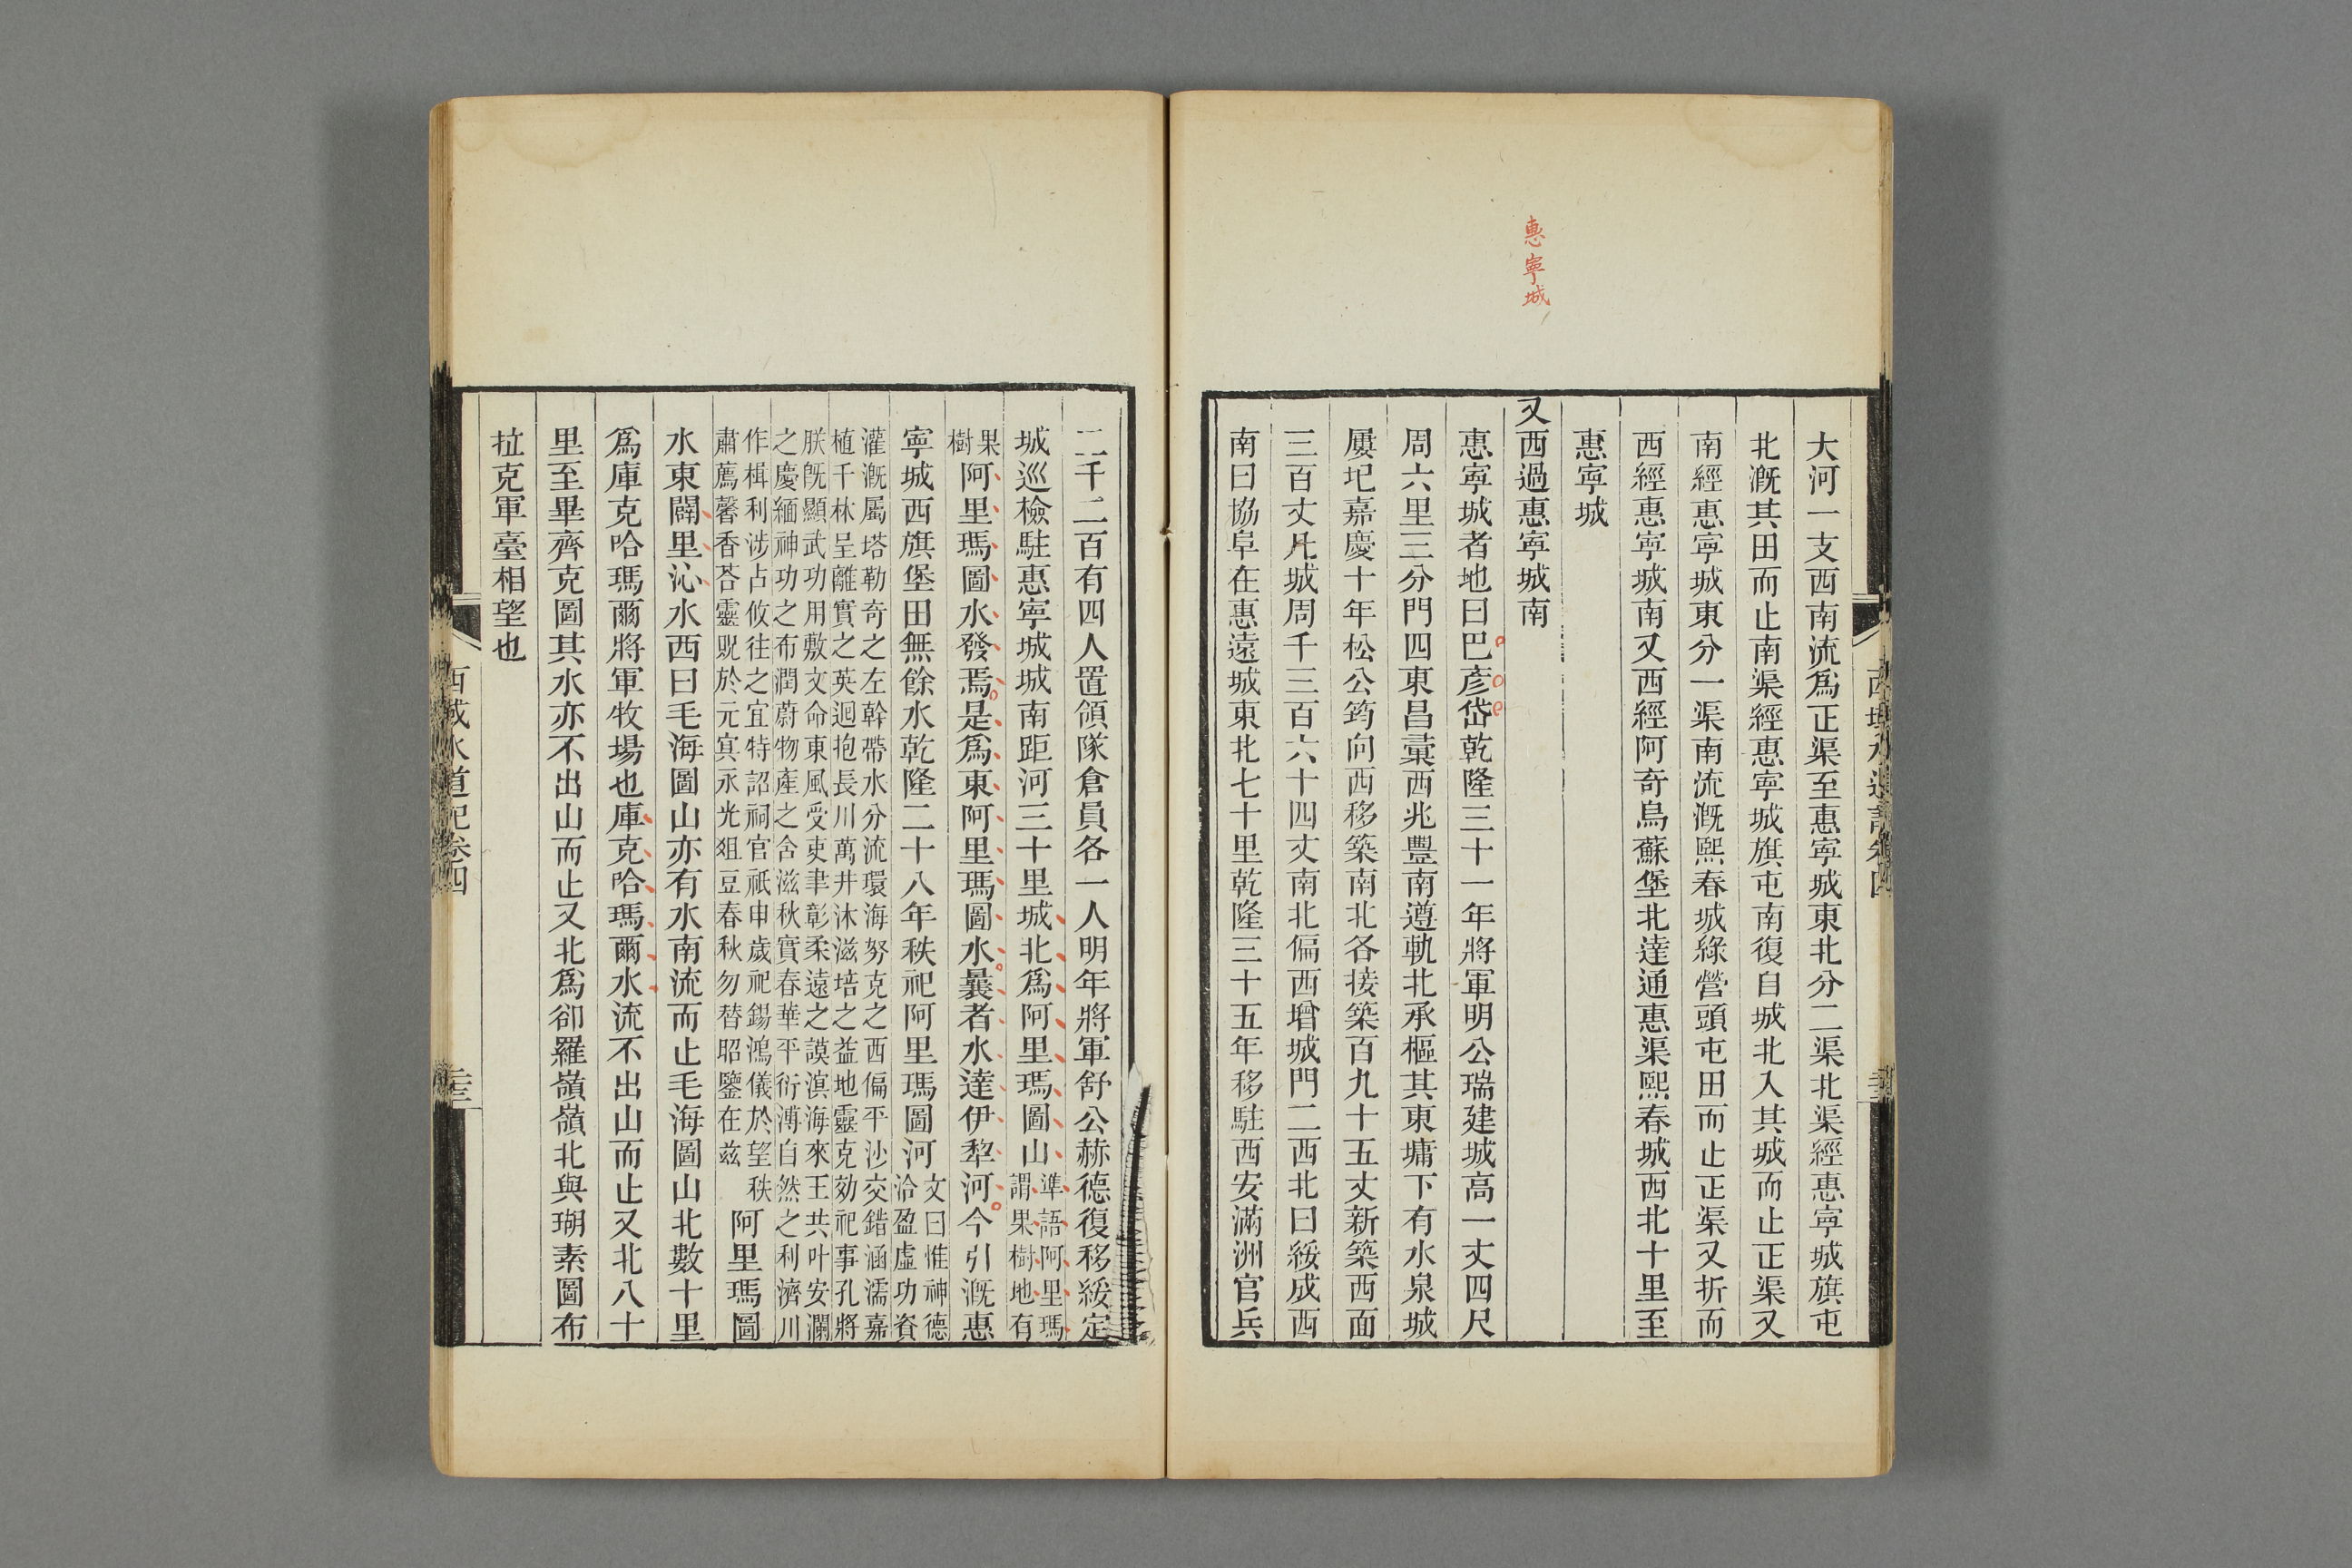 惠寧城
大河一支西南流爲正渠至惠寧城東北分二渠北渠經惠寧城旗屯
北漑其田而止南渠經惠寧城旗屯南復自城北入其城而止正渠又
南經惠寧城東分一渠南流漑熙春城綠營頭屯田而止正渠又折而
西經惠寧城南又西經阿奇烏蘇堡北達通惠渠熙春城西北十里至
惠寧城
又西過惠寧城南
惠寧城者地曰巴彥岱乾隆三十一年將軍明公瑞建城高一丈四尺
周六里三分門四東昌彚西兆豐南遵軌北承樞其東墉下有水泉城
屢圮嘉慶十年松公筠向西移築南北各接築百九十五丈新築西面
三百丈凡城周千三百六十四丈南北偏西增城門二西北曰綏成西
南曰協阜在惠遠城東北七十里乾隆三十五年移駐西安滿洲官兵
二千二百有四人置領隊倉員各一人明年將軍舒公赫德復移綏定
城巡檢駐惠寧城城南距河三十里城北爲阿里瑪圖山準語阿里瑪謂果樹地有
果樹阿里瑪圖水發焉是爲東阿里瑪圖水曩者水達伊犂河今引漑惠
寧城西旗堡田無餘水乾隆二十八年秩祀阿里瑪圖河文曰惟神德洽盈虛功資
灌漑屬塔勒奇之左幹帶水分流環海努克之西偏平沙交錯涵濡嘉
植千林呈離實之英迴抱長川萬井沐滋培之益地靈克効祀事孔將
朕旣顯武功用敷文命東風受吏聿彰柔遠之謨溟海來王共叶安瀾
之慶緬神功之布潤蔚物產之含滋秋實春華平衍溥自然之利濟川
作楫利涉占攸往之宜特詔祠官祇申歲祀錫鴻儀於望秩
肅薦馨香荅靈貺於元㝠永光俎豆春秋勿替昭鑒在兹阿里瑪圖
水東闢里沁水西曰毛海圖山亦有水南流而止毛海圖山北數十里
爲庫克哈瑪爾將軍牧場也庫克哈瑪爾水流不出山而止又北八十
里至畢齊克圖其水亦不出山而止又北爲郤羅嶺嶺北與瑚素圖布
拉克軍臺相望也
西域水道記卷四